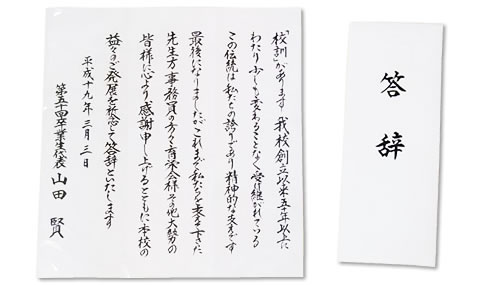 「校訓」があります 我校創立以来五十年以上に
わたり少しも変わることなく受け継がれている
この伝統は私たちの誇りであり精神的な支えです
最後になりましたがこれまで私たちを支え下さた
先生方事務員の方々育栄会様その他大勢の
皆様に心より感謝申し上げるとともに本校の
益々のご発展を祈念して答辞といたします
平成十九年三月三日
第五十四卒業生代表 山田 賢
答辞